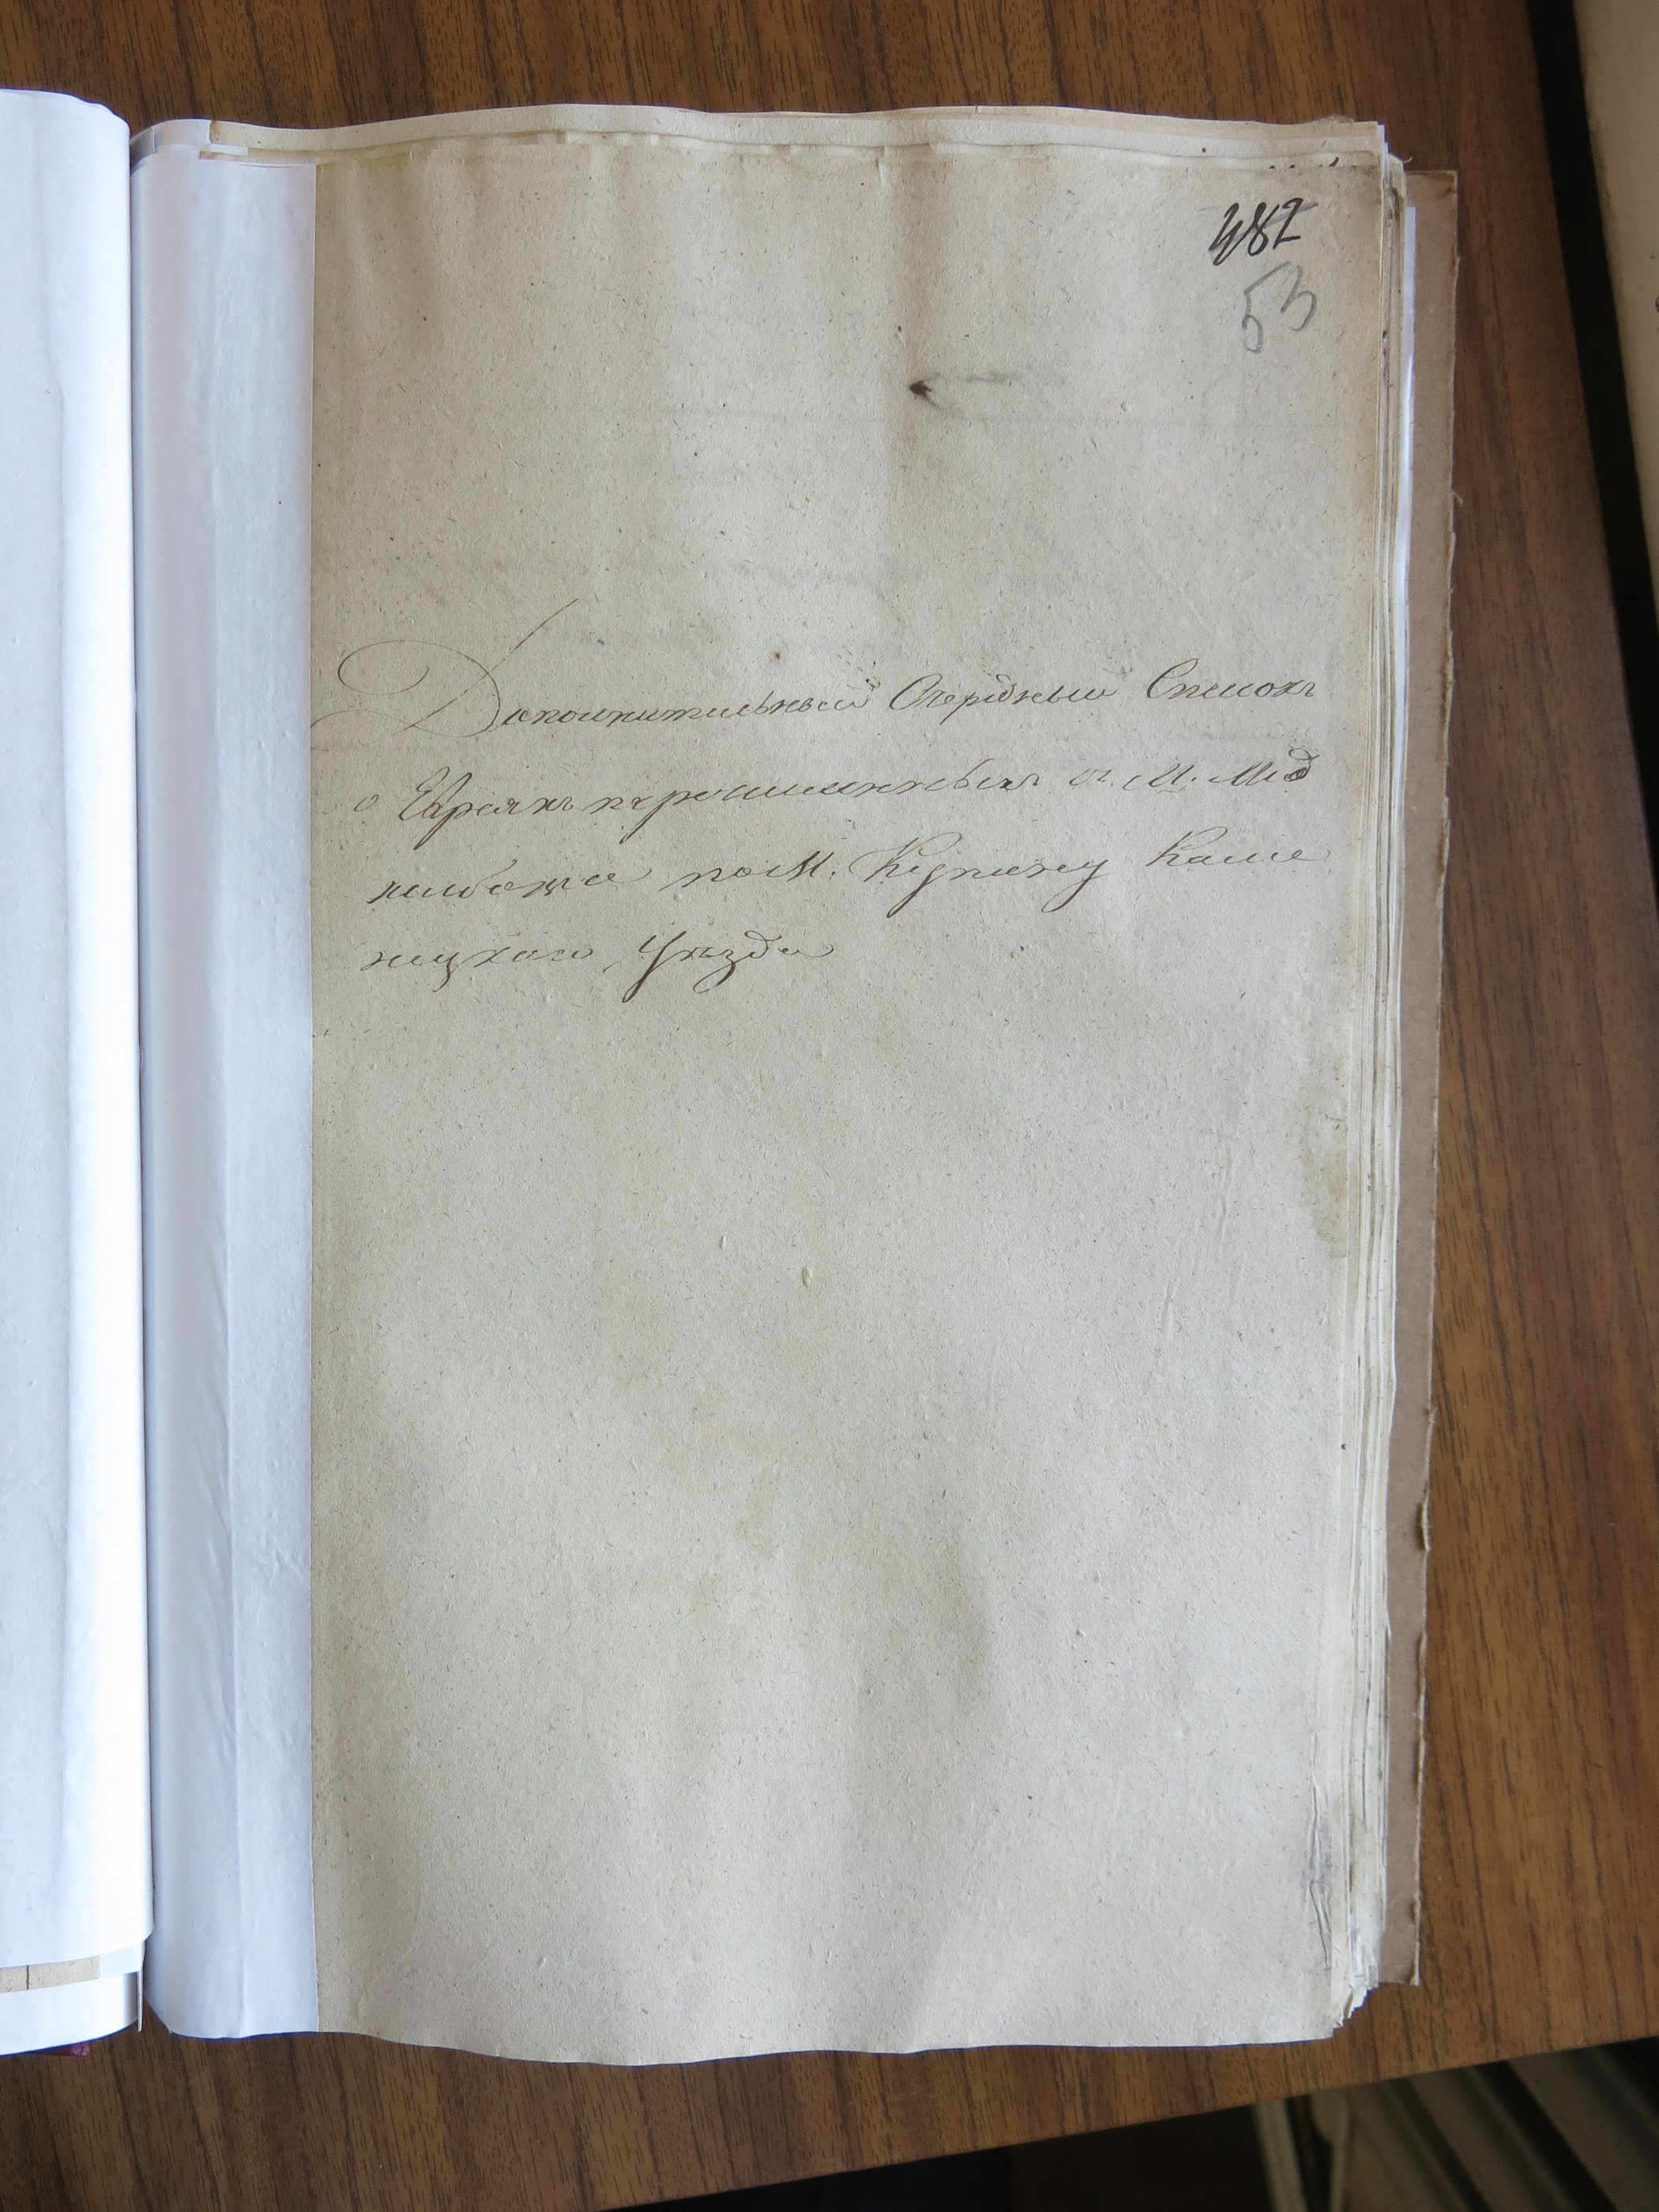 482
53
Дополнительный Очередный Список
о Евреяхъ перечисленныхъ съ М. Мед
жибожа по М. Купину Каме
нецкаго Уѣзда